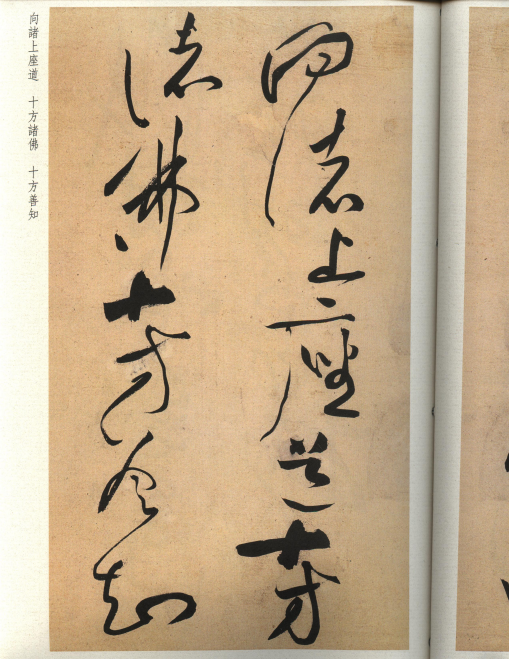 向諸上座道　十方諸佛　十方善知
向諸上座道十方
諸佛十方善知